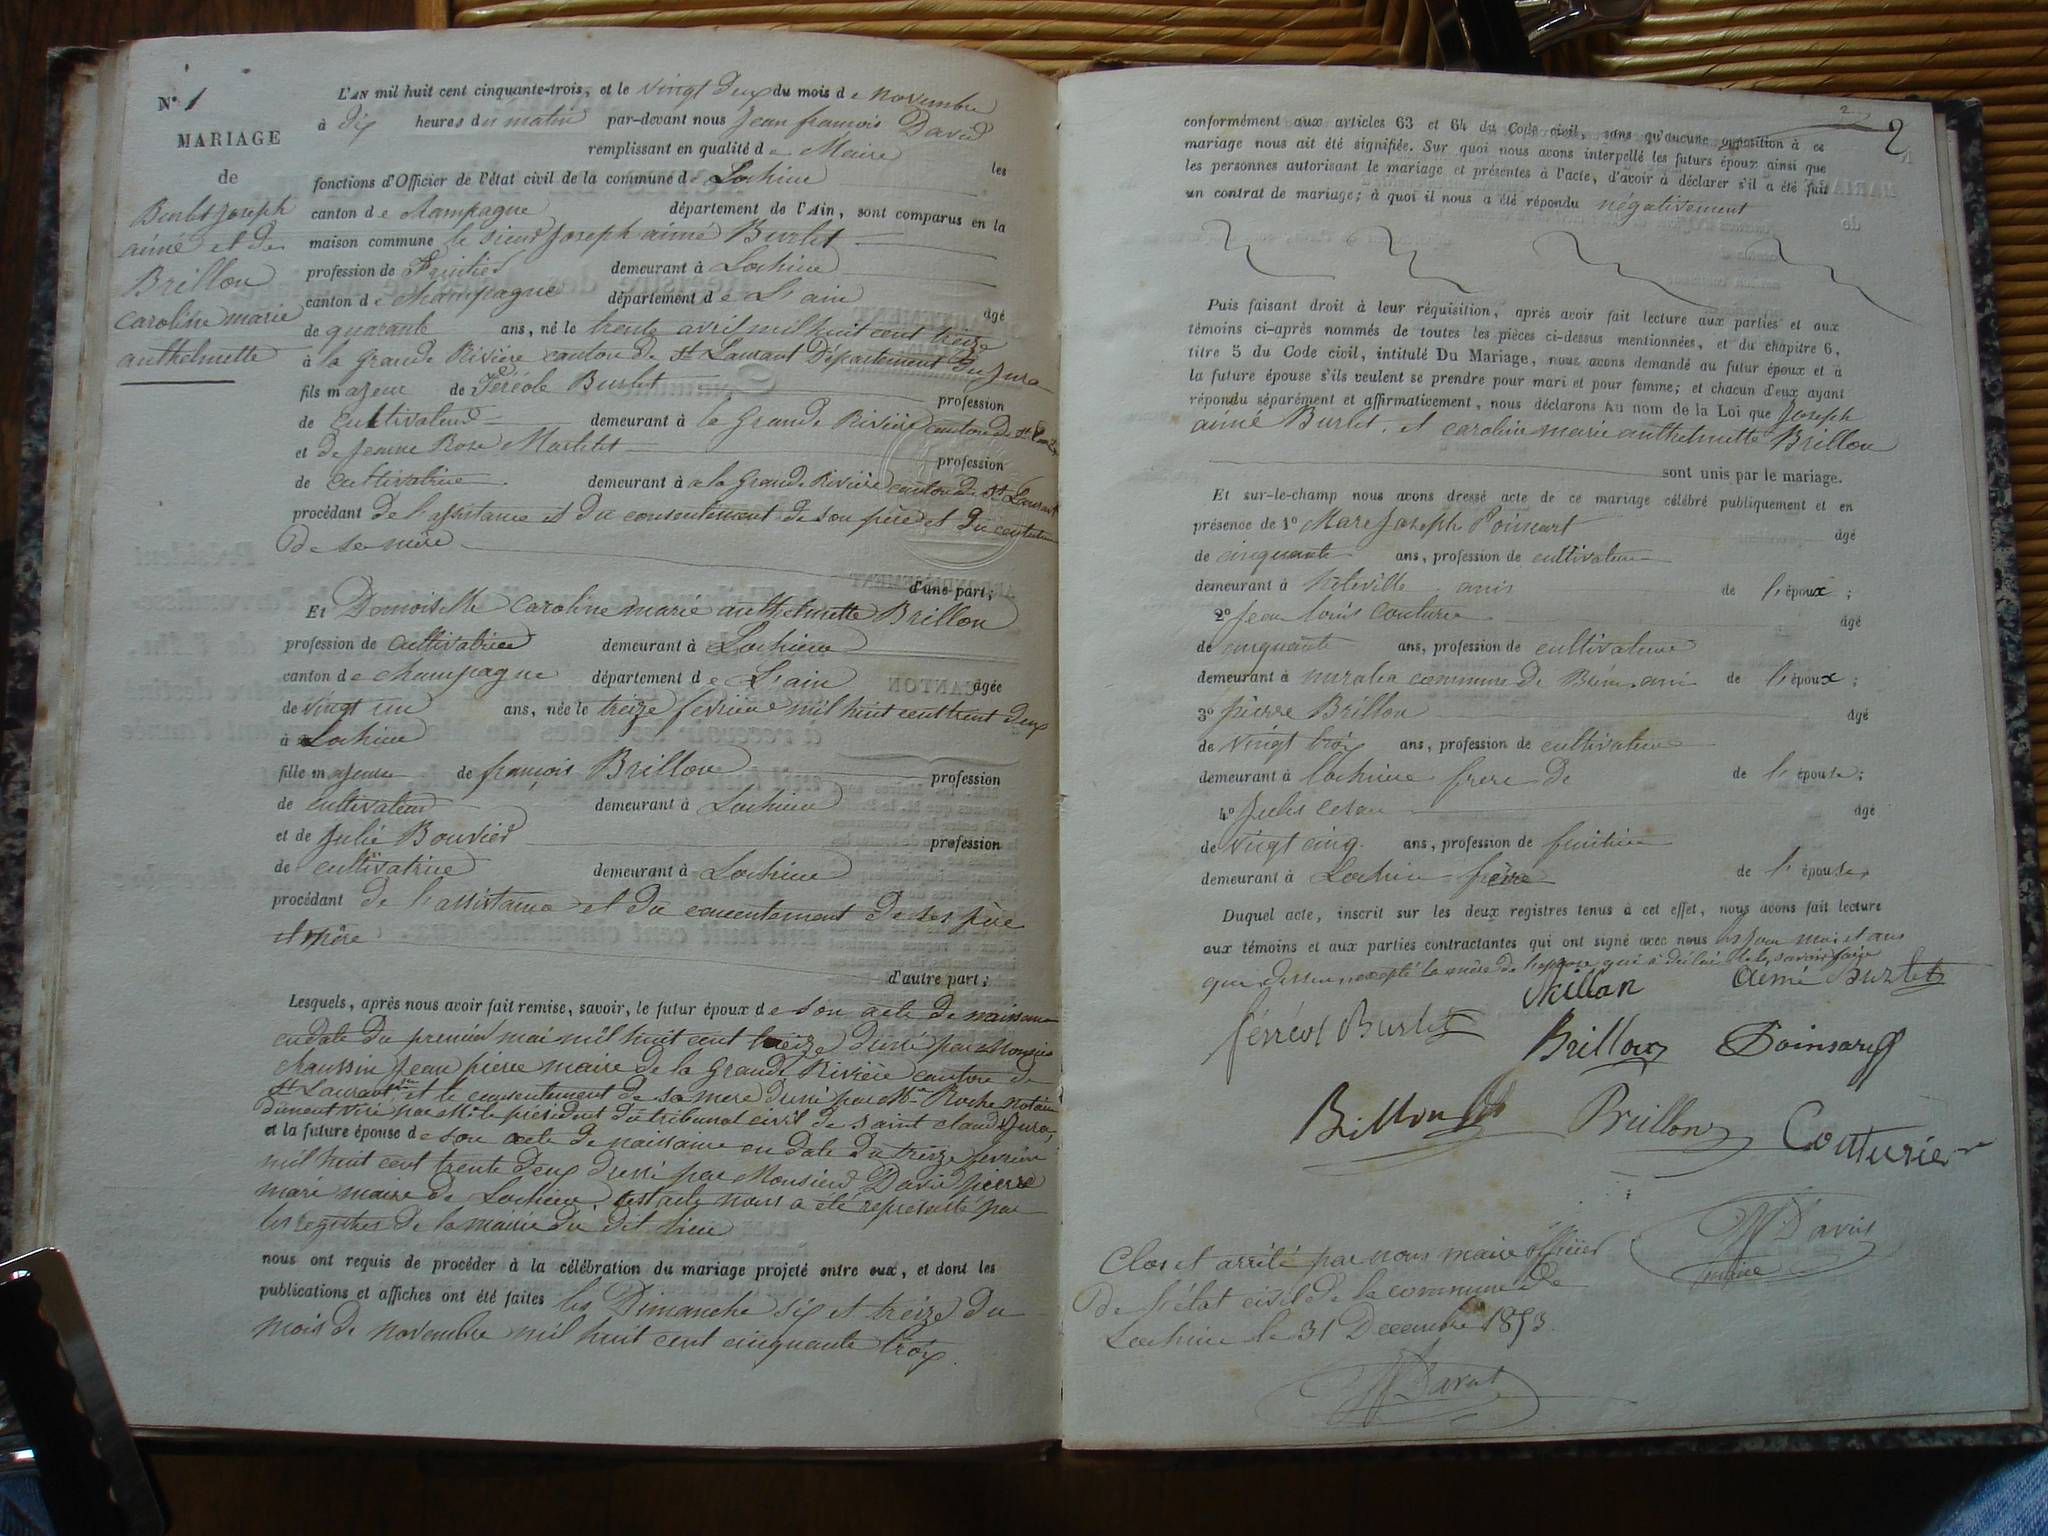 N° 1
MARIAGE
de
Burlet Joseph
aimé et de
Brillon
caroline marie
anthelmette
L'AN mil huit cent cinquante-trois, et le vingt deux du mois de novembre
à dix heures du matin par-devant nous Jean françois David
remplissant en qualité de Maire les
fonctions d'Officier de l'état civil de la commune de Lochieu
canton de champagne département de l'Ain, sont comparus en la
maison commune le sieur Joseph aimé Burlet
profession de Fruitier demeurant à Lochieu
canton de champagne département de L'ain âgé
de quarante ans, né le trente avril mil huit cent treize
à la Grande Rivière canton de St Laurant Département du Jura
fils majeur de Féréole Burlet profession
de cultivateur demeurant à la Grande Rivière canton de St
et de Jeanne Rose Martelet profession
de cultivatrice demeurant à a la Grande Rivière canton de St Laurant
procédant de l'assistance et du consentement de son père et du
de sa mère
d'une part;
Et Demoiselle caroline marie anthelmette Brillon
profession de cultivatrice demeurant à Lochieu
canton de champagne département de L'ain âgée
de vingt un ans, née le treize fevrier mil huit cent trent deux
à Lochieu
fille majeure de françois Brillon profession
de cultivateur demeurant à Lochieu
et de Julie Bouvier profession
de cultivatrice demeurant à Lochieu
procédant de l'assistance et du concentement de ses père
et mère
d'autre part;
Lesquels, après nous avoir fait remise, savoir, le futur époux de son acte de naissance
en date du premier mai mil huit cent treize dressé par Monsieur
chaussin Jean pierre maire de la Grande Rivière canton de
St Laurant et le consentement de sa mere dressé par Me Roche notaire
dument visé par Mr le président du tribunal civil de saint claude Jura,
et la future épouse de son acte de naissance en date du treize fevrier
mil huit cent trente deux dressé par Monsieur David pierre
marie maire de Lochieu, cest acte nous a été représenté par
les registres de la mairie du dit lieu
nous ont requis de procéder à la célébration du mariage projeté entre eux, et dont les
publications et affiches ont été faites les Dimanche six et treize du
mois de novembre mil huit cent cinquante trois.
2
2
conformément aux articles 63 et 64 du Code civil, sans qu'aucune opposition à ce
mariage nous ait été signifiée. Sur quoi nous avons interpellé les futurs époux ainsi que
les personnes autorisant le mariage et présentes à l'acte, d'avoir à déclarer s'il a été fait
un contrat de mariage; à quoi il nous a été répondu négativement
Puis faisant droit à leur réquisition, après avoir fait lecture aux parties et aux
témoins ci-après nommés de toutes les pièces ci-dessus mentionnées, et du chapitre 6,
titre 5 du Code civil, intitulé Du Mariage, nous avons demandé au futur époux et à
la future épouse s'ils veulent se prendre pour mari et pour femme; et chacun d'eux ayant
répondu séparément et affirmativement, nous déclarons au nom de la Loi que Joseph
aimé Burlet, et caroline marie anthelmette Brillon
sont unis par le mariage.
Et sur-le-champ nous avons dressé acte de ce mariage célébré publiquement et en
présence de 1° Marc Joseph Poinsart âgé
de cinquante ans, profession de cultivateur
demeurant à amis de l'époux;
2° Jean louis couturier âgé
de cinquante ans, profession de cultivateur
demeurant à commune de ami de l'époux;
3° pierre Brillon âgé
de vingt trois ans, profession de cultivateur
demeurant à lochieu frere de de l'épouse;
4° Jules âgé
de vingt cinq ans, profession de fruitier
demeurant à Lochieu frère de l'épouse,
Duquel acte, inscrit sur les deux registres tenus à cet effet, nous avons fait lecture
aux témoins et aux parties contractantes qui ont signé avec nous les jour mois et ans
que dessus excepté la mère de l'épouse qui a déclaré ne le savoir faire
Brillon Aimé Burlet
férréol Burlet Brillon Poinsard
Brillon Brillon Couturier
David
maire
Clos et arrêté par nous maire officier
de l'état civil de la commune de
Lochieu le 31 Decembre 1853.
David